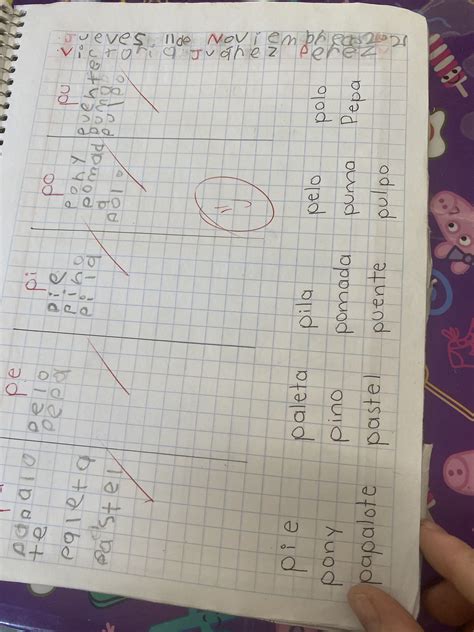 Jueves 11 de Noviembre 2021
Victoria Juárez Pérez
pe pi po pu
papalo
te
paleta
pastel
pelo
pepa
pie
pino
pila
pony
pomada
polo
pie paleta pila pelo polo
pony pino pomada puma Pepa
papalote pastel puente pulpo